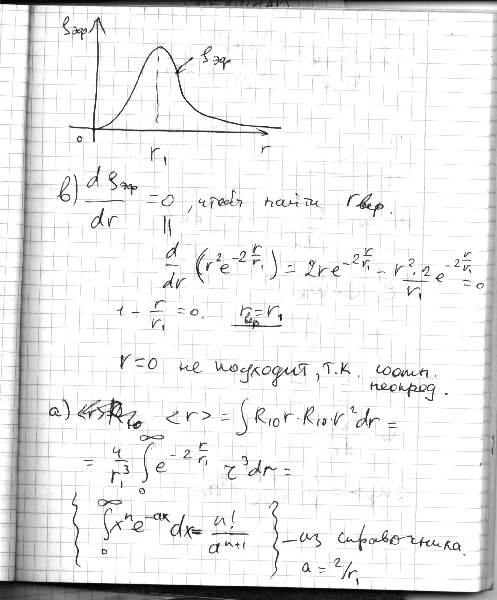 ρэф
ρэф
0 r₁ r
в) dρэф/dr = 0, чтобы найти rвер.
||
d/dr (r²e^(-2r/r₁)) = 2re^(-2r/r₁) - r²·2/r₁ e^(-2r/r₁) = 0
1 - r/r₁ = 0. rвер = r₁
r=0 не подходит, т.к. соотн. неопред.
а) <r> = ∫R₁₀r·R₁₀·r²dr =
= 4/r₁³ ∫₀^∞ e^(-2r/r₁) r³dr =
{ ∫₀^∞ xⁿe^(-ax)dx = n!/a^(n+1) } – из справочника.
a = 2/r₁